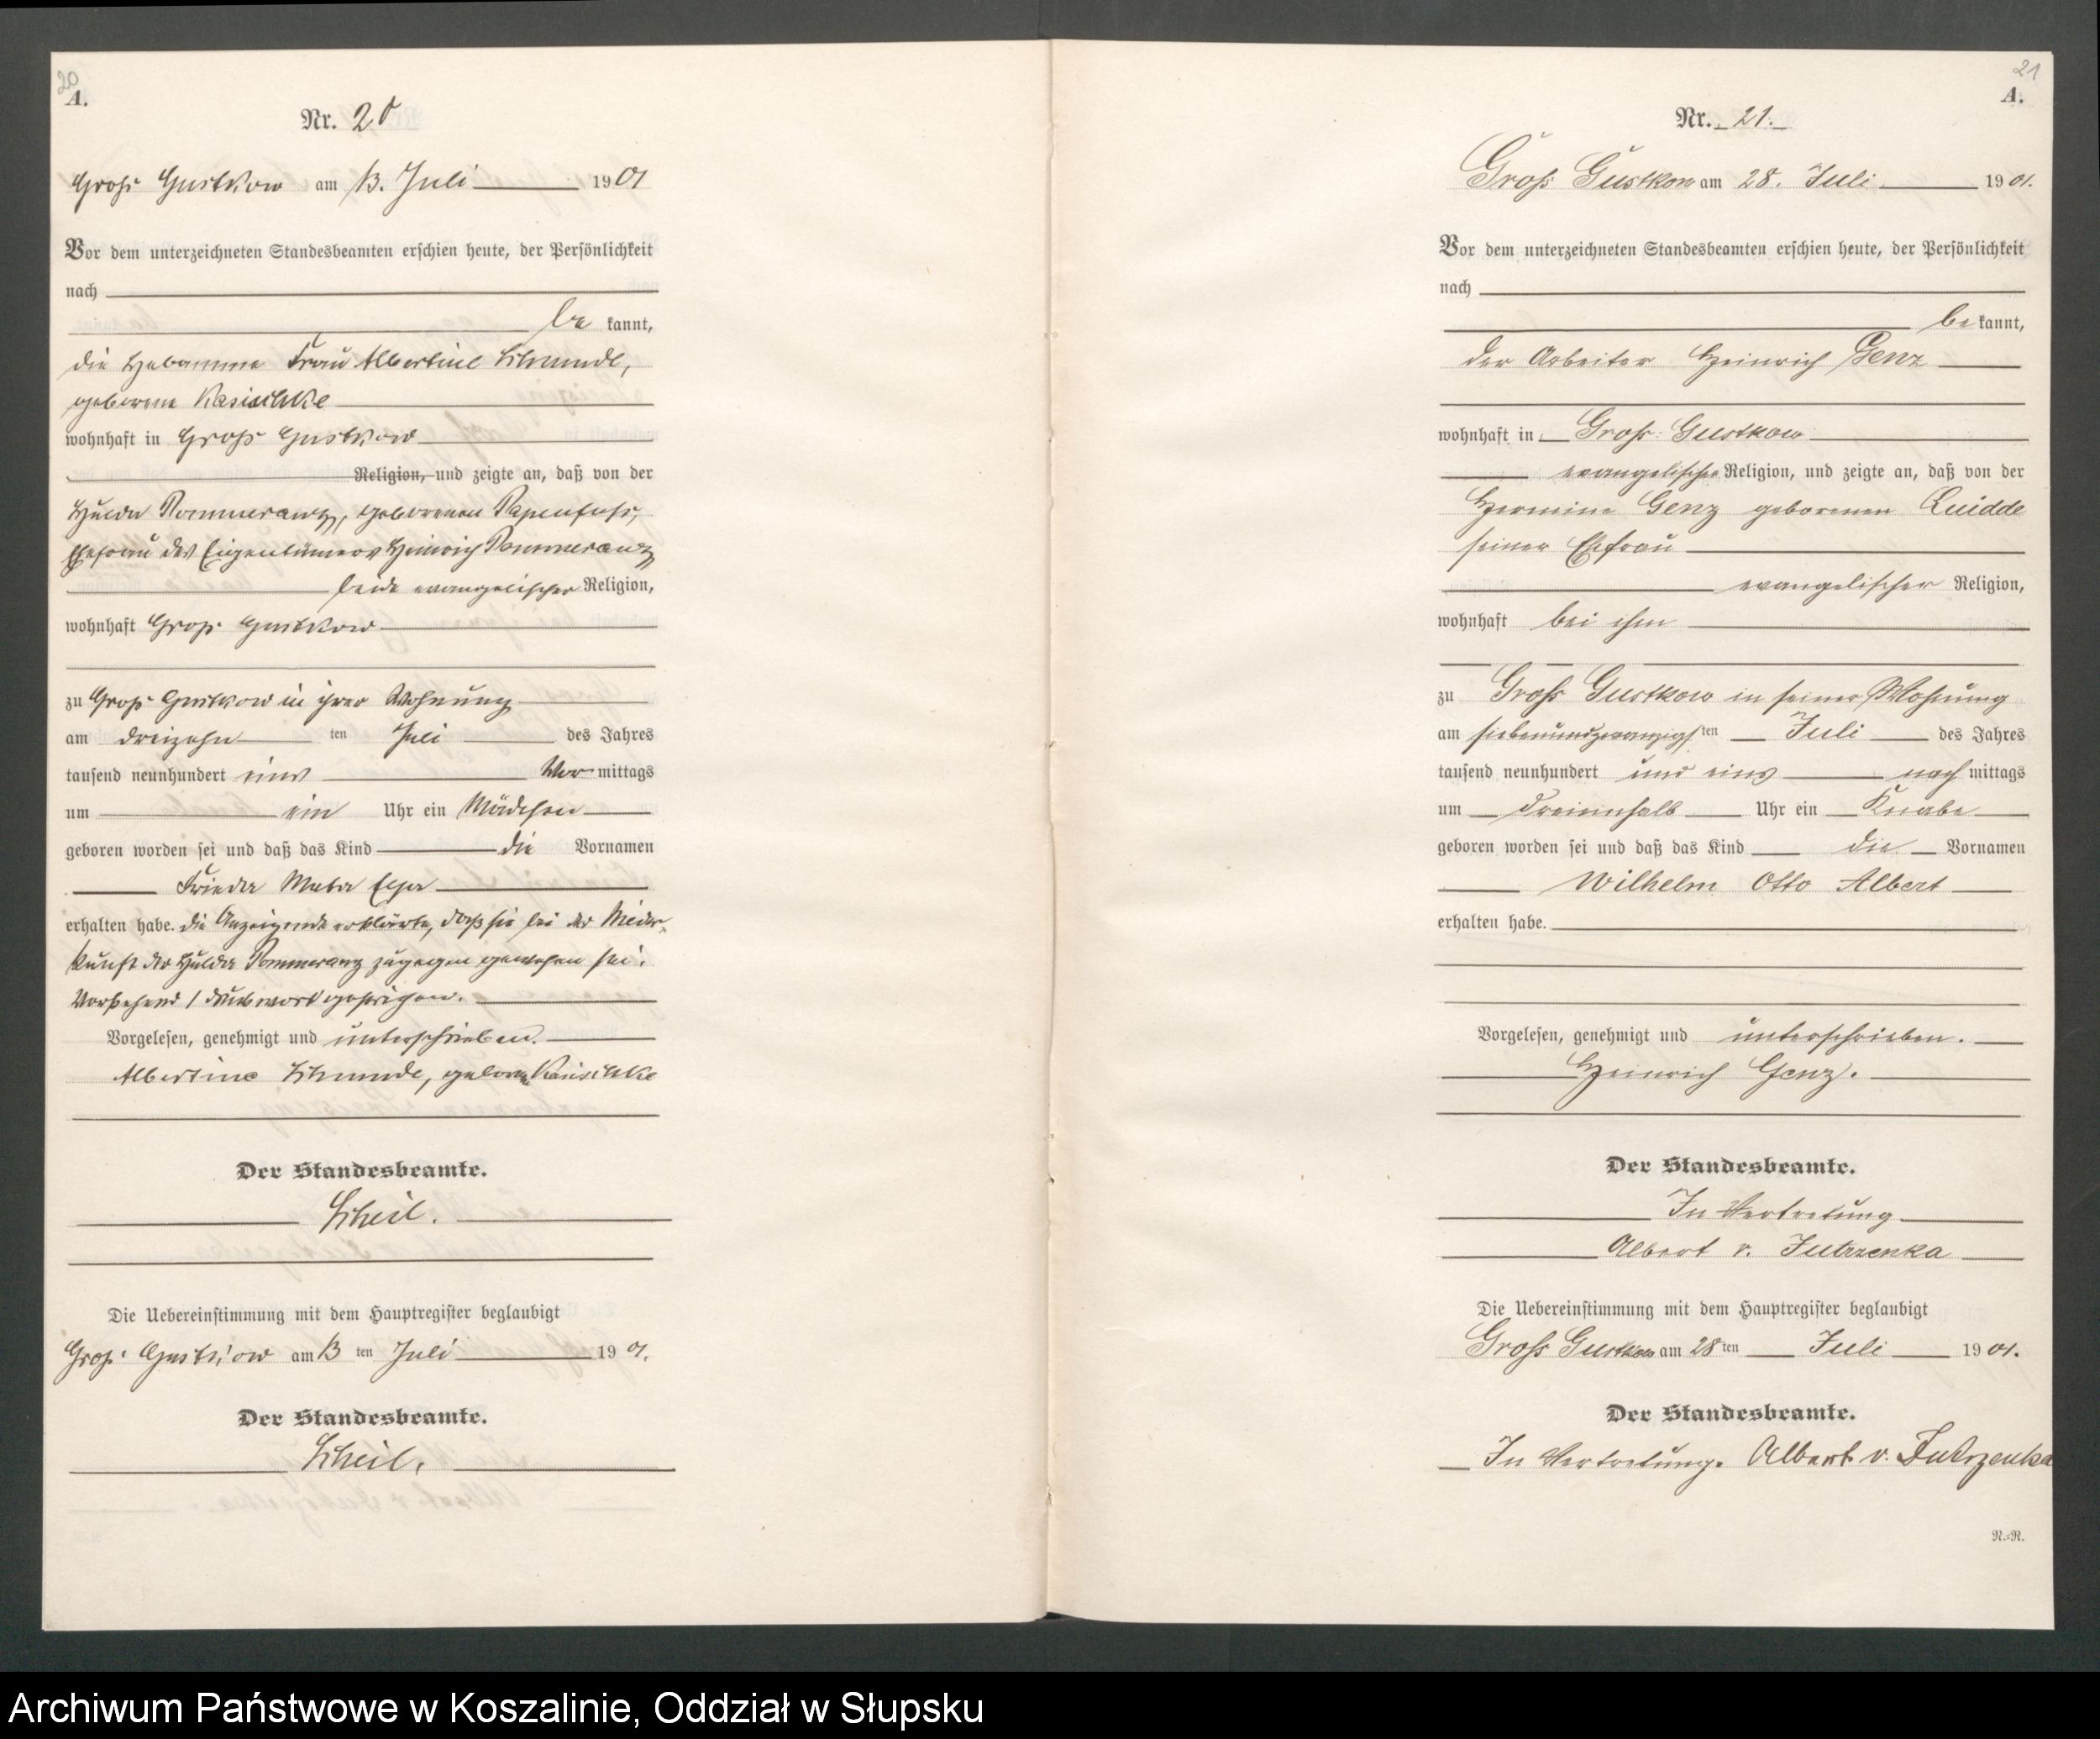 20
A.
Nr. 20
Groß Gustkow am 13. Juli 1901
Vor dem unterzeichneten Standesbeamten erschien heute, der Persönlichkeit
nach
be kannt,
die Hebamme Frau Albertine
geborene Kasischke
wohnhaft in Groß Gustkow
Religion, und zeigte an, daß von der
Hulda Pommeranz, geborenen Papenfuß,
Ehefrau des Eigentümers Heinrich Pommeranz
beide evangelischer Religion,
wohnhaft Groß Gustkow
zu Groß Gustkow in ihrer Wohnung
am dreizehn ten Juli des Jahres
tausend neunhundert eins Vor mittags
um ein Uhr ein Mädchen
geboren worden sei und daß das Kind die Vornamen
Frieda
erhalten habe. Die Anzeigende erklärte, daß sie bei der Nieder-
kunft der Hulda Pommeranz zugegen gewesen sei.
Vorstehend 1 Druckwort gestrichen.
Vorgelesen, genehmigt und unterschrieben.
Albertine geborene Kasischke
Der Standesbeamte.
Scheil.
Die Uebereinstimmung mit dem Hauptregister beglaubigt
Groß Gustkow am 13 ten Juli 1901.
Der Standesbeamte.
Scheil.
21
A.
Nr. 21.
Groß Gustkow am 28. Juli 1901.
Vor dem unterzeichneten Standesbeamten erschien heute, der Persönlichkeit
nach
be kannt,
der Arbeiter Heinrich Genz
wohnhaft in Groß Gustkow
evangelischer Religion, und zeigte an, daß von der
Hermine Genz geborenen Quidde
seiner Ehefrau
evangelischer Religion,
wohnhaft bei ihm
zu Groß Gustkow in seiner Wohnung
am siebenundzwanzigsten Juli des Jahres
tausend neunhundert und eins nach mittags
um dreieinhalb Uhr ein Knabe
geboren worden sei und daß das Kind die Vornamen
Wilhelm Otto Albert
erhalten habe.
Vorgelesen, genehmigt und unterschrieben.
Heinrich Genz.
Der Standesbeamte.
In Vertretung
Albert v. Jutrzenka
Die Uebereinstimmung mit dem Hauptregister beglaubigt
Groß Gustkow am 28 ten Juli 1901.
Der Standesbeamte.
In Vertretung. Albert v. Jutrzenka
N.-N.
Archiwum Państwowe w Koszalinie, Oddział w Słupsku